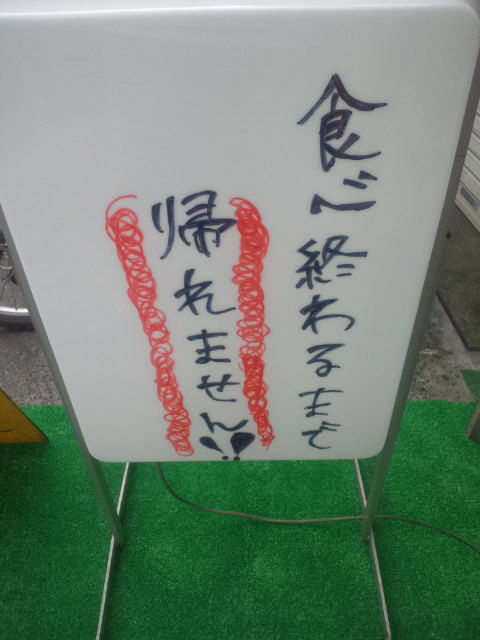 食べ終わるまで
帰れません!!